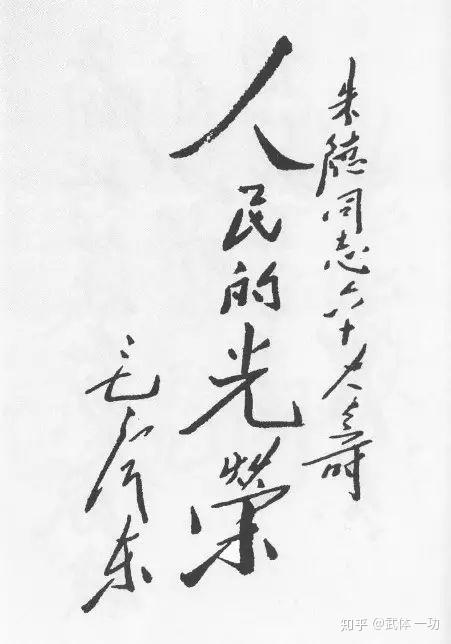 朱德同志六十大寿
人民的光榮
毛泽东
知乎 @武体一功